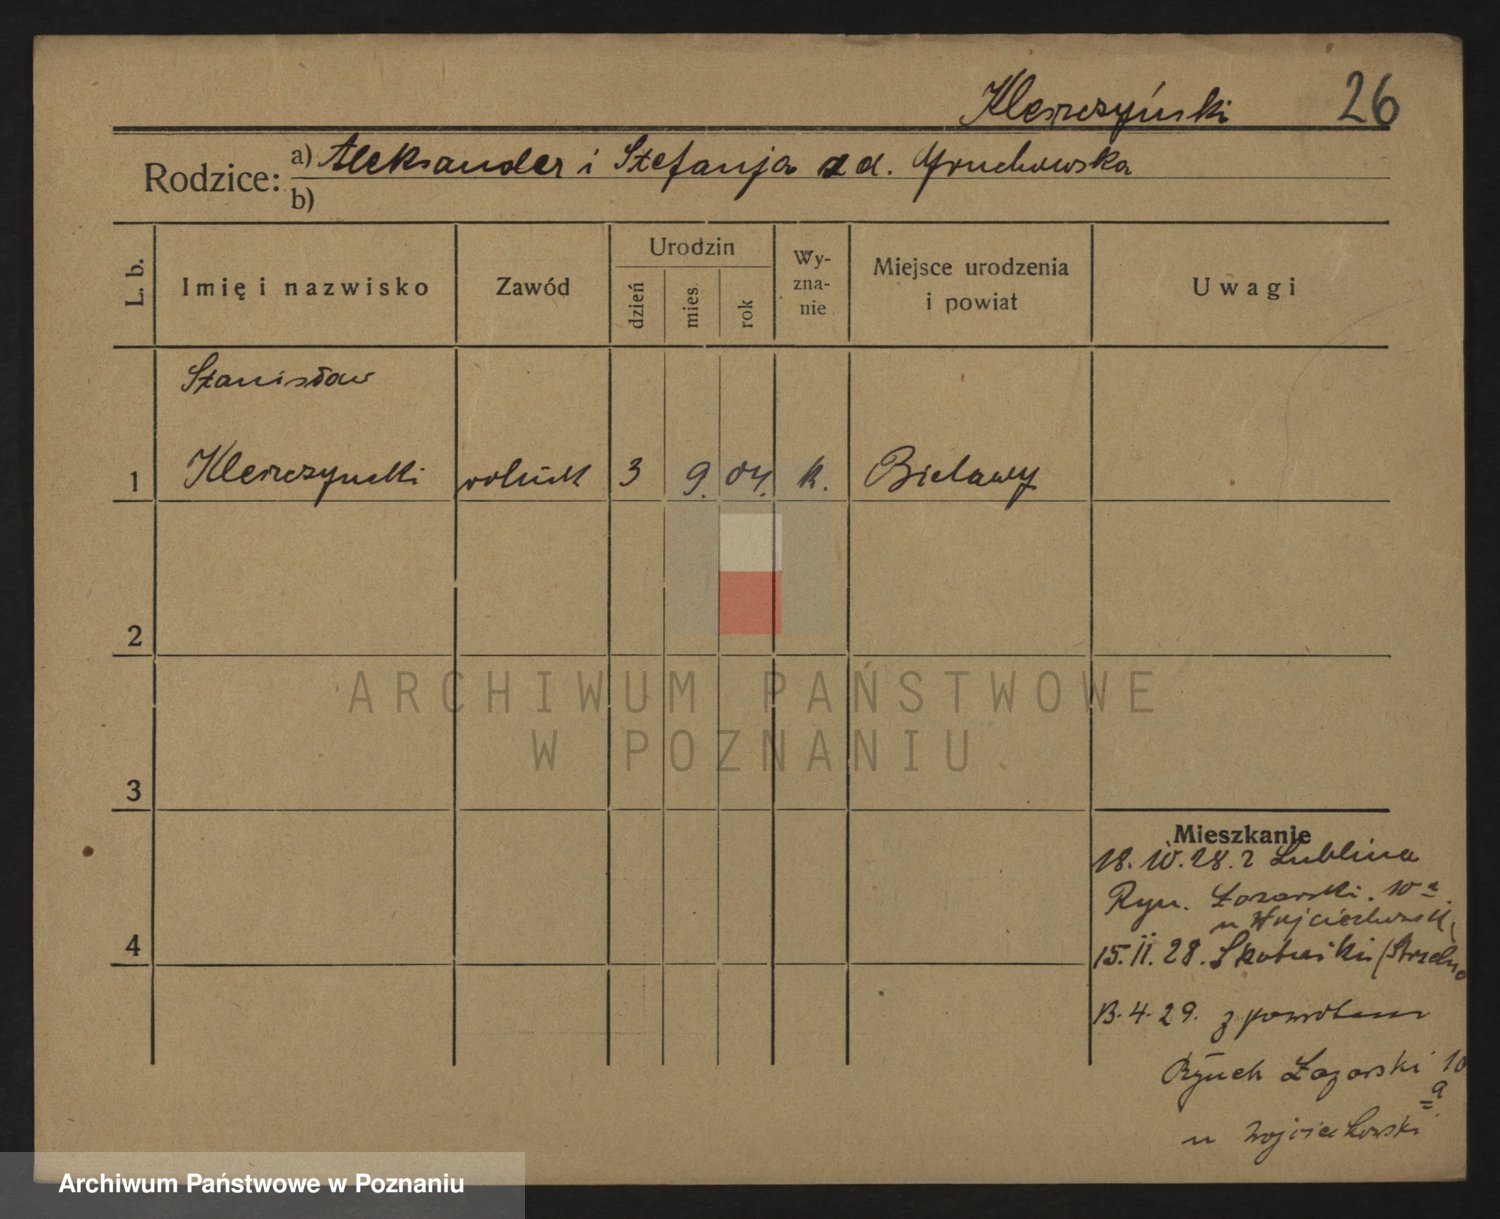 26
Rodzice: a) Aleksander i Stefanja z d. Gruchowska
b)
L. b.
Imię i nazwisko
Zawód
Urodzin
dzień
mies.
rok
Wy-
zna-
nie
Miejsce urodzenia
i powiat
Uwagi
Stanisław
1 rolnik 3 9. 04. k. Bielawy
2
ARCHIWUM PAŃSTWOWE
W POZNANIU
3
Mieszkanie
28. z Lublina
Ryn. Łazarski. 10 a.
u Wojciechowski
4
15. II. 28.
4. 29. z powrotem
Rynek Łazarski 10
a
u Wojciechowski
Archiwum Państwowe w Poznaniu